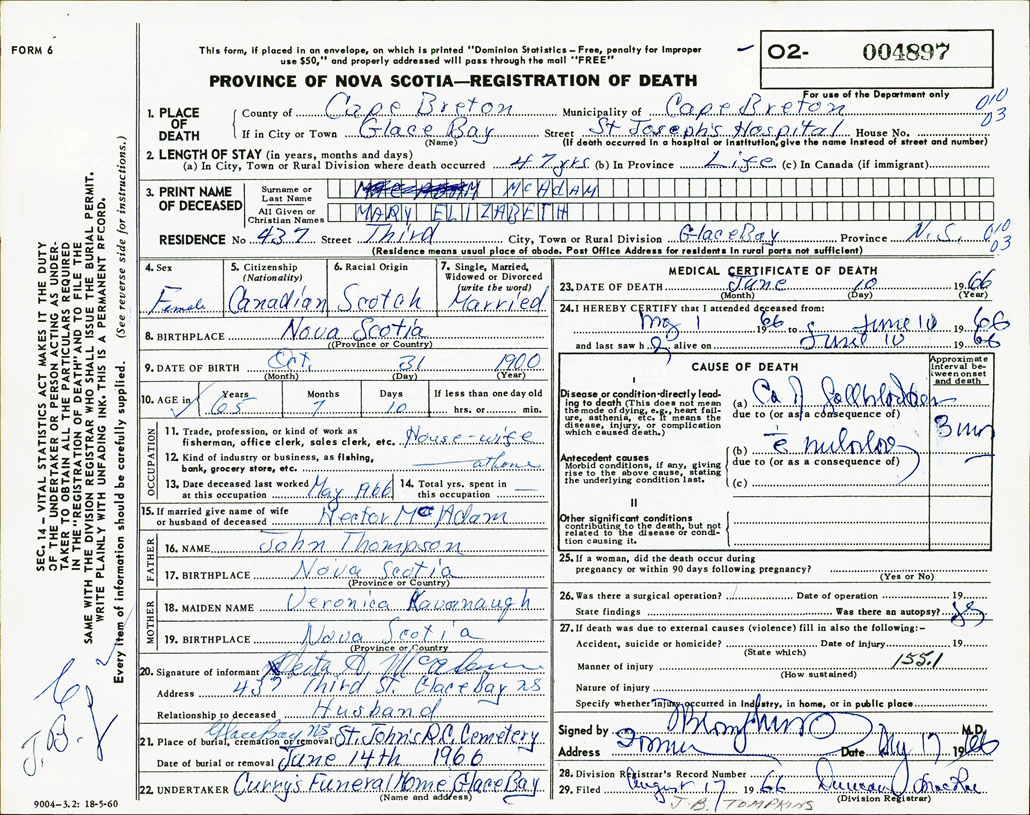 FORM 6
This form, if placed in an envelope, on which is printed "Dominion Statistics – Free, penalty for improper
use $50," and properly addressed will pass through the mail "FREE"
O2- 004897
PROVINCE OF NOVA SCOTIA—REGISTRATION OF DEATH
For use of the Department only
010
03
1. PLACE OF DEATH
County of Cape Breton Municipality of Cape Breton
If in City or Town Glace Bay Street St Joseph's Hospital House No.
(Name) (If death occurred in a hospital or institution, give the name instead of street and number)
2. LENGTH OF STAY (in years, months and days)
(a) In City, Town or Rural Division where death occurred 47 yrs (b) In Province Life (c) In Canada (if immigrant)
3. PRINT NAME OF DECEASED
Surname or Last Name McADAM
All Given or Christian Names MARY ELIZABETH
RESIDENCE No 437 Street Third City, Town or Rural Division Glace Bay Province N.S. 010
03
(Residence means usual place of abode. Post Office Address for residents in rural parts not sufficient)
4. Sex Female
5. Citizenship (Nationality) Canadian
6. Racial Origin Scotch
7. Single, Married, Widowed or Divorced (write the word) Married
8. BIRTHPLACE Nova Scotia
(Province or Country)
9. DATE OF BIRTH Oct. 31 1900
(Month) (Day) (Year)
10. AGE in Years 65 Months 7 Days 10 If less than one day old
hrs. or min.
OCCUPATION
11. Trade, profession, or kind of work as
fisherman, office clerk, sales clerk, etc. House-wife
12. Kind of industry or business, as fishing,
bank, grocery store, etc. at home
13. Date deceased last worked
at this occupation May 1966
14. Total yrs. spent in
this occupation —
15. If married give name of wife
or husband of deceased Hector McAdam
FATHER
16. NAME John Thompson
17. BIRTHPLACE Nova Scotia
(Province or Country)
MOTHER
18. MAIDEN NAME Veronica Kavanaugh
19. BIRTHPLACE Nova Scotia
(Province or Country)
20. Signature of informant
Address 437 Third St. Glace Bay NS
Relationship to deceased Husband
Glace Bay NS
21. Place of burial, cremation or removal St. John's R.C. Cemetery
Date of burial or removal June 14TH 1966
22. UNDERTAKER Curry's Funeral Home, Glace Bay
(Name and address)
MEDICAL CERTIFICATE OF DEATH
23. DATE OF DEATH June 10 1966
(Month) (Day) (Year)
24. I HEREBY CERTIFY that I attended deceased from:
May 1 1966 to June 10 1966
and last saw h alive on June 10 1966
CAUSE OF DEATH
Approximate interval between onset and death
I
Disease or condition directly leading to death (This does not mean the mode of dying, e.g., heart failure, asthenia, etc. It means the disease, injury, or complication which caused death.)
(a) Ca Gallbladder
due to (or as a consequence of)
Antecedent causes
Morbid conditions, if any, giving rise to the above cause, stating the underlying condition last.
(b)
due to (or as a consequence of)
(c)
II
Other significant conditions
contributing to the death, but not related to the disease or condition causing it.
25. If a woman, did the death occur during
pregnancy or within 90 days following pregnancy?
(Yes or No)
26. Was there a surgical operation? Date of operation 19
State findings Was there an autopsy?
27. If death was due to external causes (violence) fill in also the following:–
Accident, suicide or homicide? Date of injury 19
(State which)
Manner of injury 155.1
(How sustained)
Nature of injury
Specify whether injury occurred in industry, in home, or in public place
Signed by M.D.
Address Date 17 1966
28. Division Registrar's Record Number
29. Filed August 17 1966 Duncan MacRae
(Division Registrar)
J.B. TOMPKINS
SEC. 14 – VITAL STATISTICS ACT MAKES IT THE DUTY
OF THE UNDERTAKER OR PERSON ACTING AS UNDERTAKER TO OBTAIN ALL THE PARTICULARS REQUIRED
IN THE "REGISTRATION OF DEATH" AND TO FILE THE
SAME WITH THE DIVISION REGISTRAR WHO SHALL ISSUE THE BURIAL PERMIT.
WRITE PLAINLY WITH UNFADING INK. THIS IS A PERMANENT RECORD.
Every item of information should be carefully supplied. (See reverse side for instructions.)
9004-3.2: 18-5-60